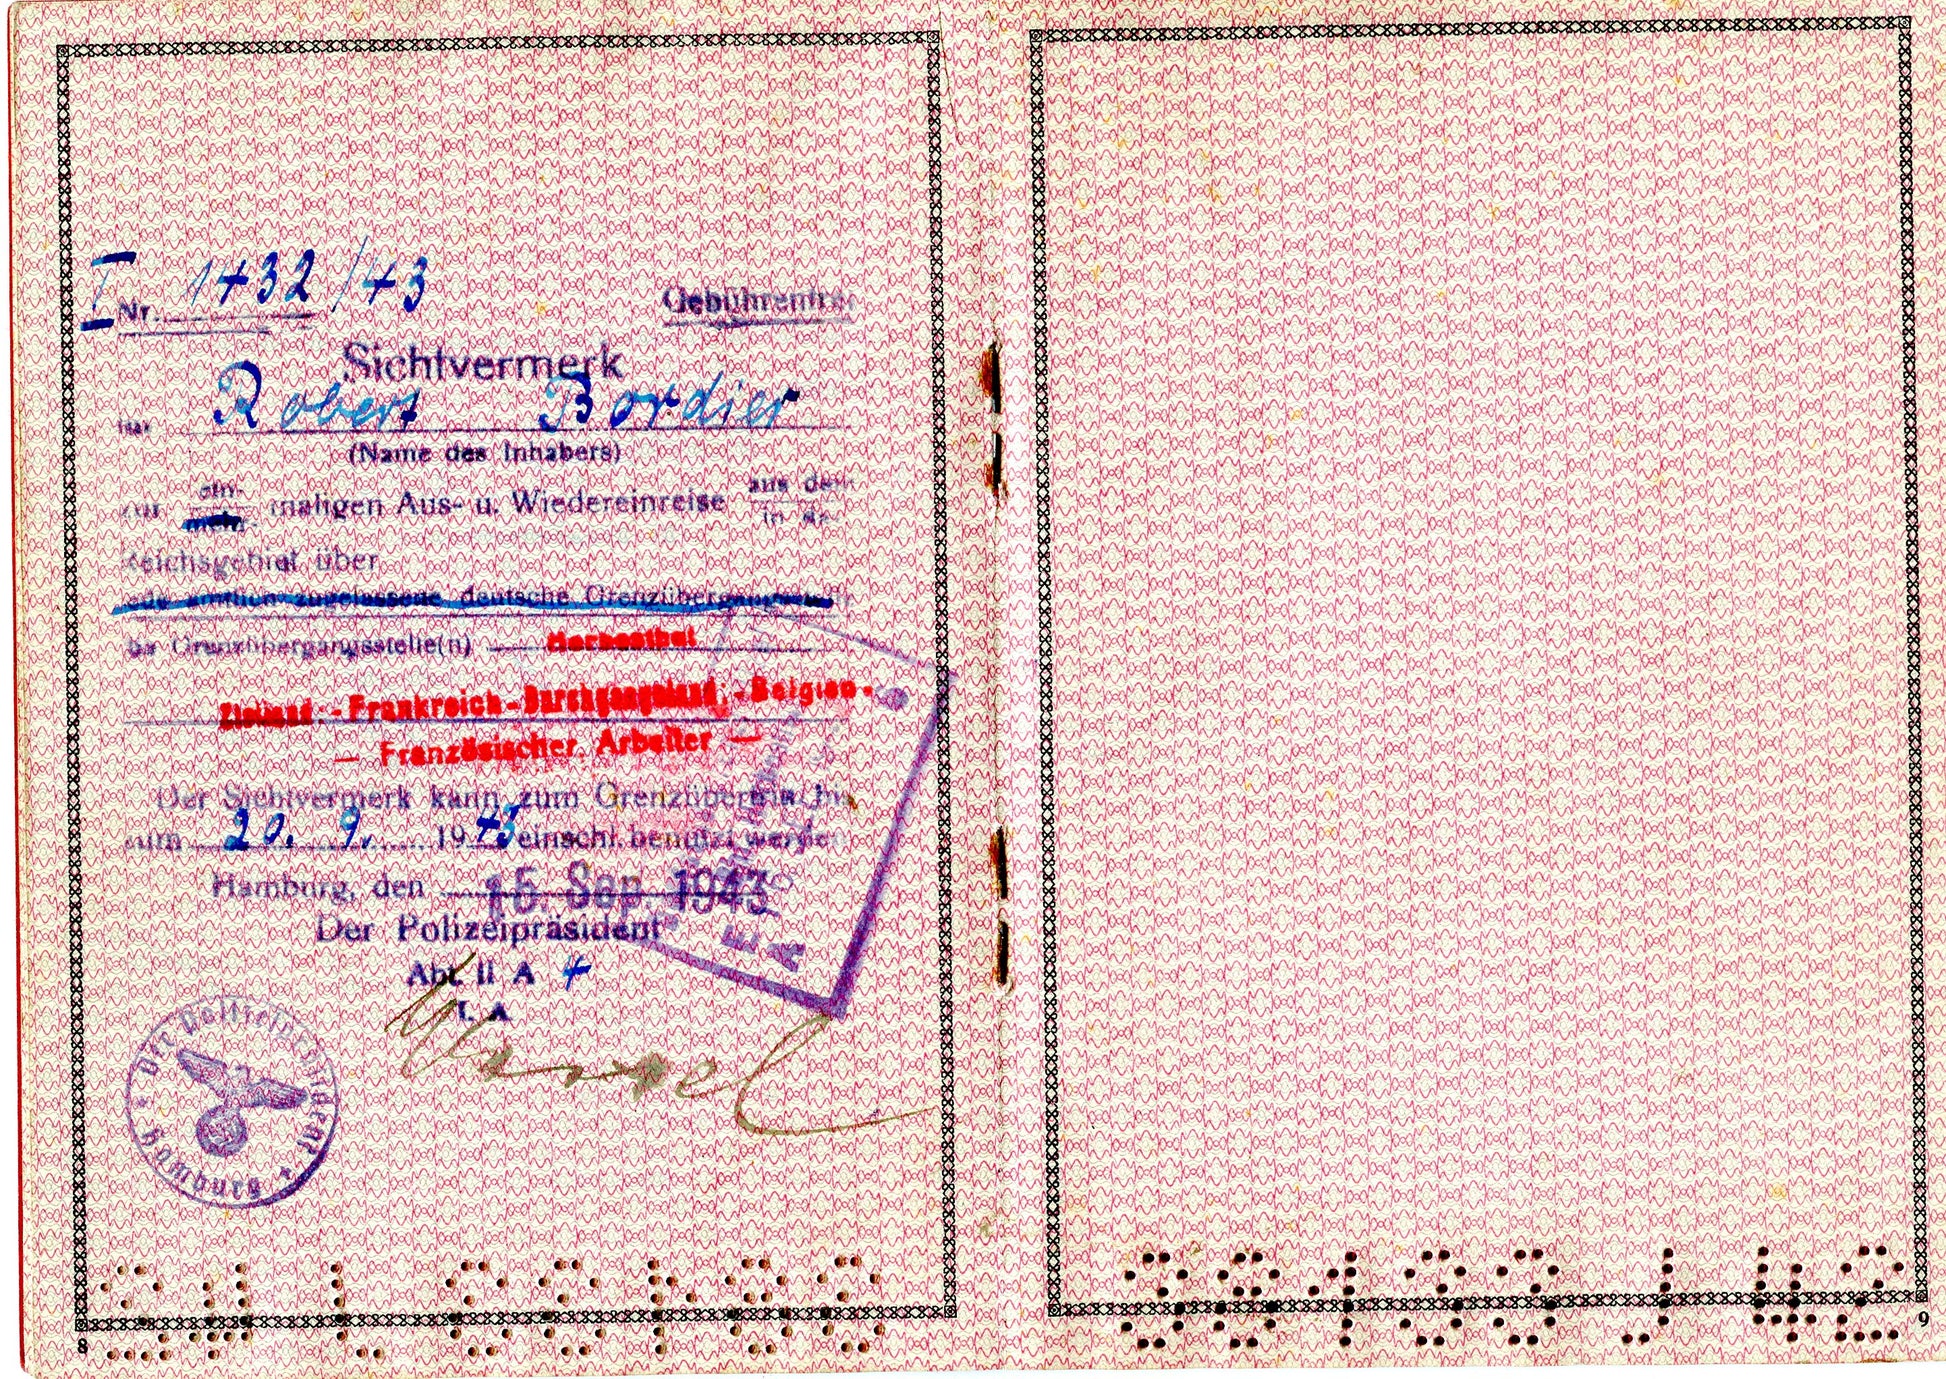 I Nr. 1432/43
Gebührenfrei
Sichtvermerk
Robert Bordier
(Name des Inhabers)
zur ein-
mehr- maligen Aus- u. Wiedereinreise aus dem
in das
Reichsgebiet über
jede amtlich zugelassene deutsche Grenzübergangsstelle
Grenzübergangsstelle(n) Herbesthal
Zielland: - Frankreich - Durchgangsland: - Belgien -
— Französischer Arbeiter —
Der Sichtvermerk kann zum Grenzübertritt bis
zum 20. 9. 1943 einschl. benutzt werden
Hamburg, den 15. Sep. 1943
Der Polizeipräsident
Abt. II A 4
I. A
Der Polizeipräsident
Hamburg
8
9